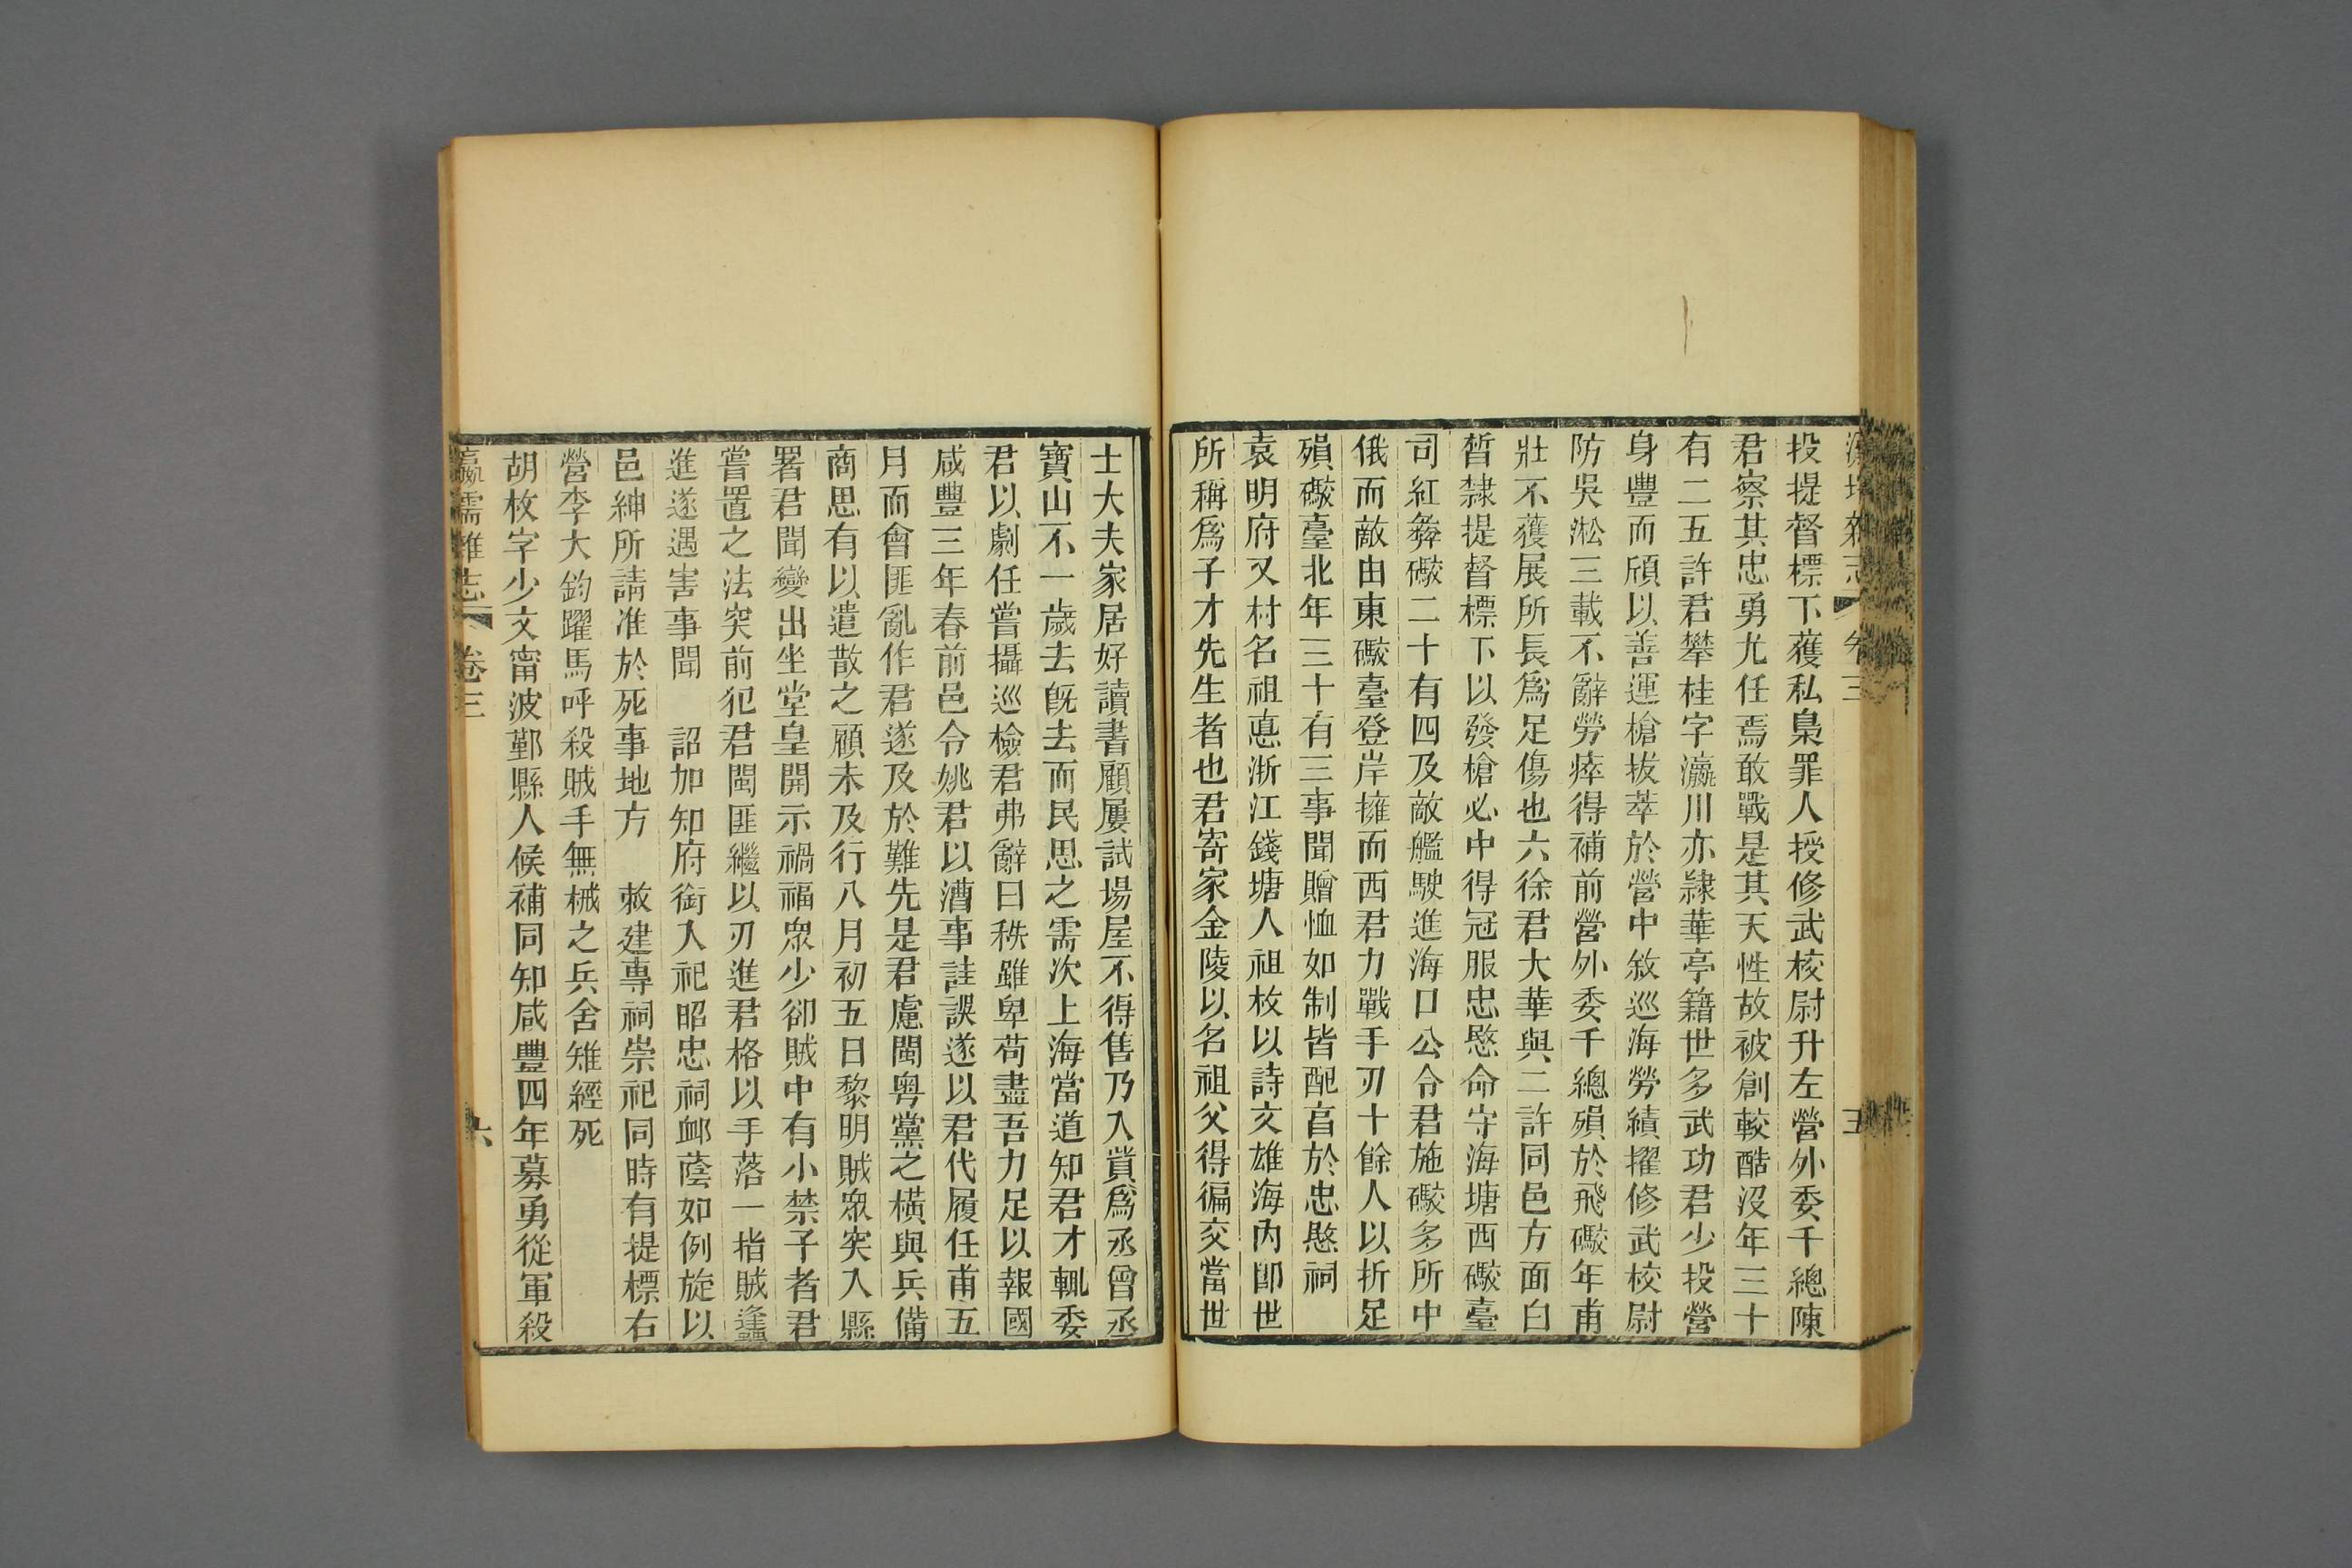 投提督標下獲私梟罪人授修武校尉升左營外委千總陳
君察其忠勇尤任焉敢戰是其天性故被創較酷沒年三十
有二五許君攀桂字瀛川亦隷華亭籍世多武功君少投營
身豐而頎以善運槍拔萃於營中敘巡海勞績擢修武校尉
防吳淞三載不辭勞瘁得補前營外委千總殞於飛礮年甫
壯不獲展所長爲足傷也六徐君大華與二許同邑方面白
皙隸提督標下以發槍必中得冠服忠愍命守海塘西礮臺
司紅𢑱礮二十有四及敵艦駛進海口公令君施礮多所中
俄而敵由東礮臺登岸擁而西君力戰手刃十餘人以折足
殞礮臺北年三十有三事聞贈恤如制皆配㐭於忠愍祠
袁明府又村名祖悳浙江錢塘人祖枚以詩文雄海內卽世
所稱爲子才先生者也君寄家金陵以名祖父得徧交當世
士大夫家居好讀書顧屢試場屋不得售乃入貲爲丞曾丞
寶山不一歲去旣去而民思之需次上海當道知君才輒委
君以劇任嘗攝巡檢君弗辭曰秩雖卑苟盡吾力足以報國
咸豐三年春前邑令姚君以漕事詿誤遂以君代履任甫五
月而會匪亂作君遂及於難先是君慮閩粤黨之橫與兵備
商思有以遣散之顧未及行八月初五日黎明賊眾突入縣
署君聞變出坐堂皇開示禍福眾少卻賊中有小禁子者君
嘗置之法突前犯君閩匪繼以刃進君格以手落一指賊遙
進遂遇害事聞　詔加知府銜入祀昭忠祠卹蔭如例旋以
邑紳所請准於死事地方　敕建專祠崇祀同時有提標右
營李大鈞躍馬呼殺賊手無械之兵舍雉經死
胡枚字少文甯波鄞縣人候補同知咸豐四年募勇從軍殺
瀛壖雜志　卷三　六